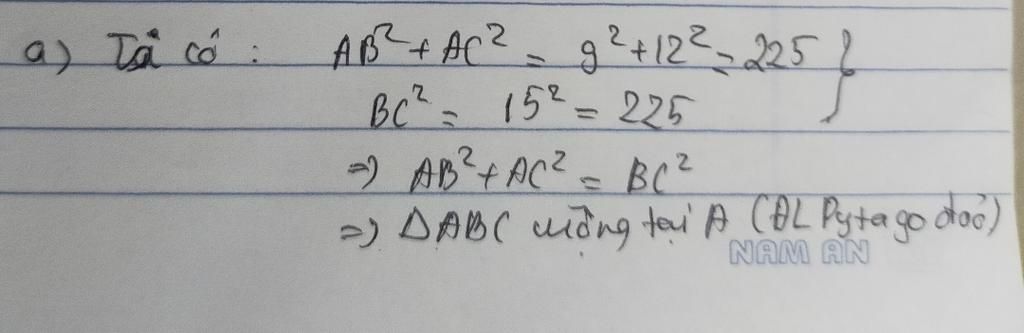 a) Ta có : AB² + AC² = 9² + 12² = 225 }
BC² = 15² = 225
=> AB² + AC² = BC²
=> ΔABC vuông tại A (ĐL Pytago đảo)
NAM AN